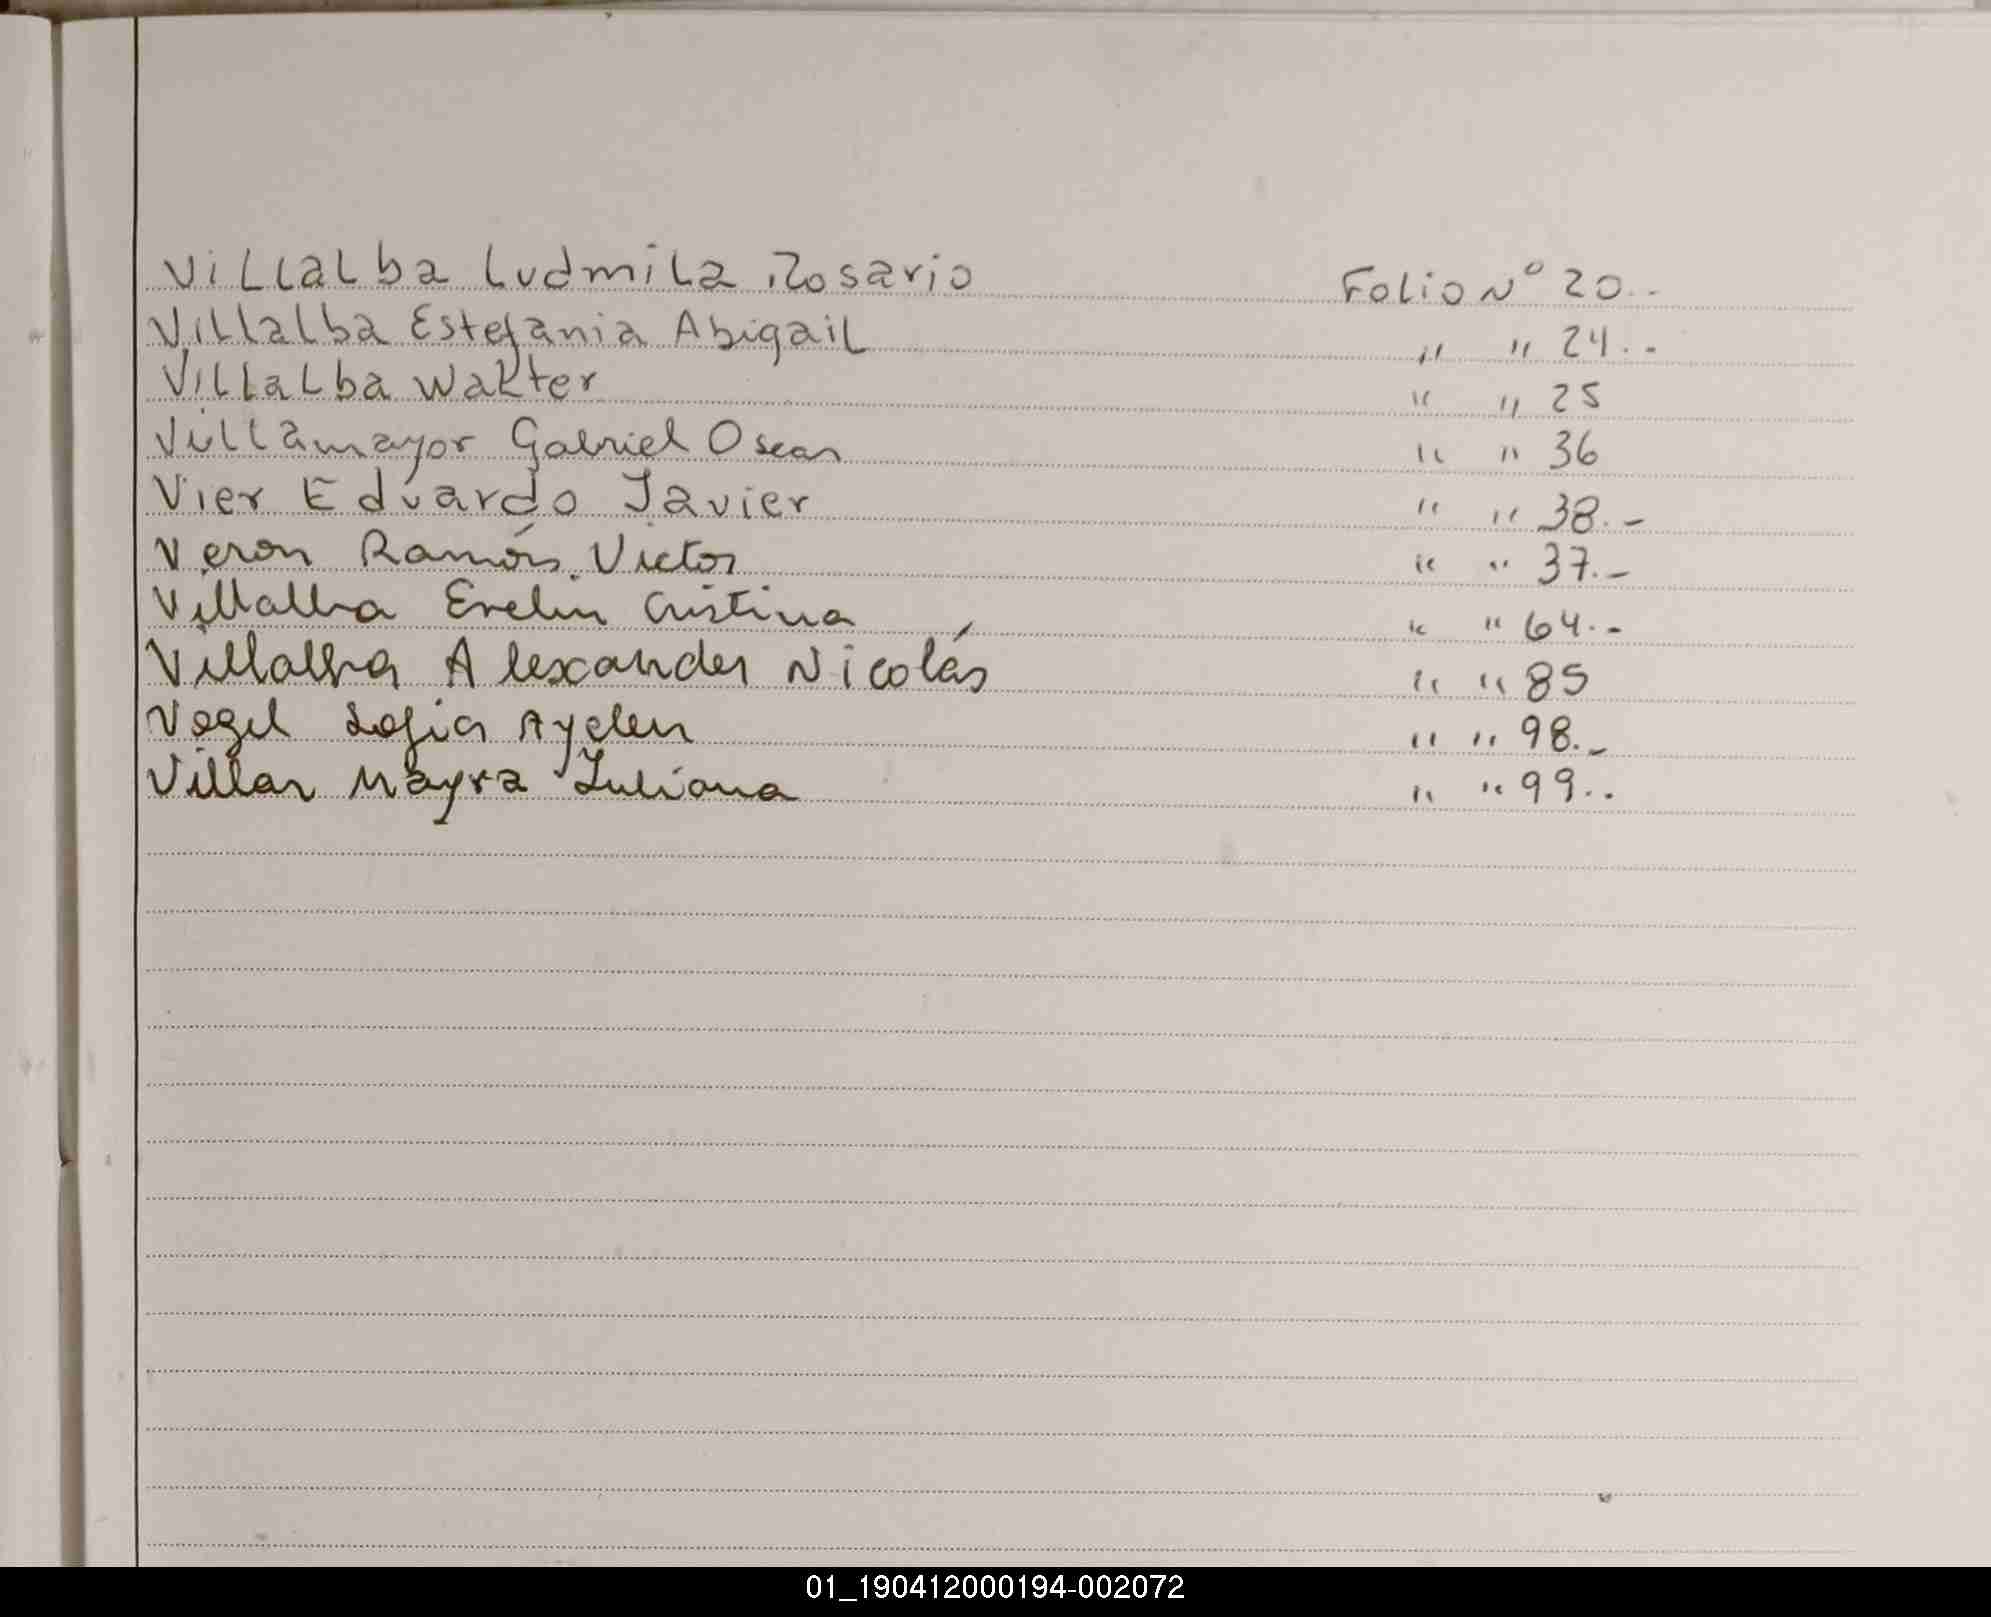 Villalba Ludmila Rosario Folio Nº 20.-
Villalba Estefania Abigail " " 24.-
Villalba Walter " " 25
Villamayor Gabriel Oscar " " 36
Vier Eduardo Javier " " 38.-
Veron Ramón Victor " " 37.-
Villalba Evelin Cristina " " 64.-
Villalba Alexander Nicolás " " 85
Vogel Sofia Ayelen " " 98.-
Villar Mayra Juliana " " 99.-
01_190412000194-002072